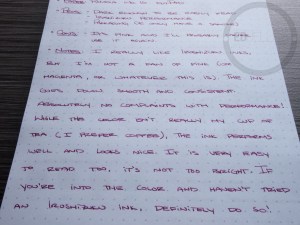 • Pros: Dark enough to be easily read
Iroshizuku performance
• Cons: It's pink and I'll probably never
use it again
• Notes: I really like Iroshizuku inks,
but I'm not a fan of pink (or
magenta, or whatever this is). The ink
goes down smooth and consistent.
Absolutely no complaints with performance!
While the color isn't really my cup of
tea (I prefer coffee), the ink performs
well and looks nice. It is very easy
to read too, it's not too bright. If
you're into the color and haven't tried
an Iroshizuku ink, definitely do so!